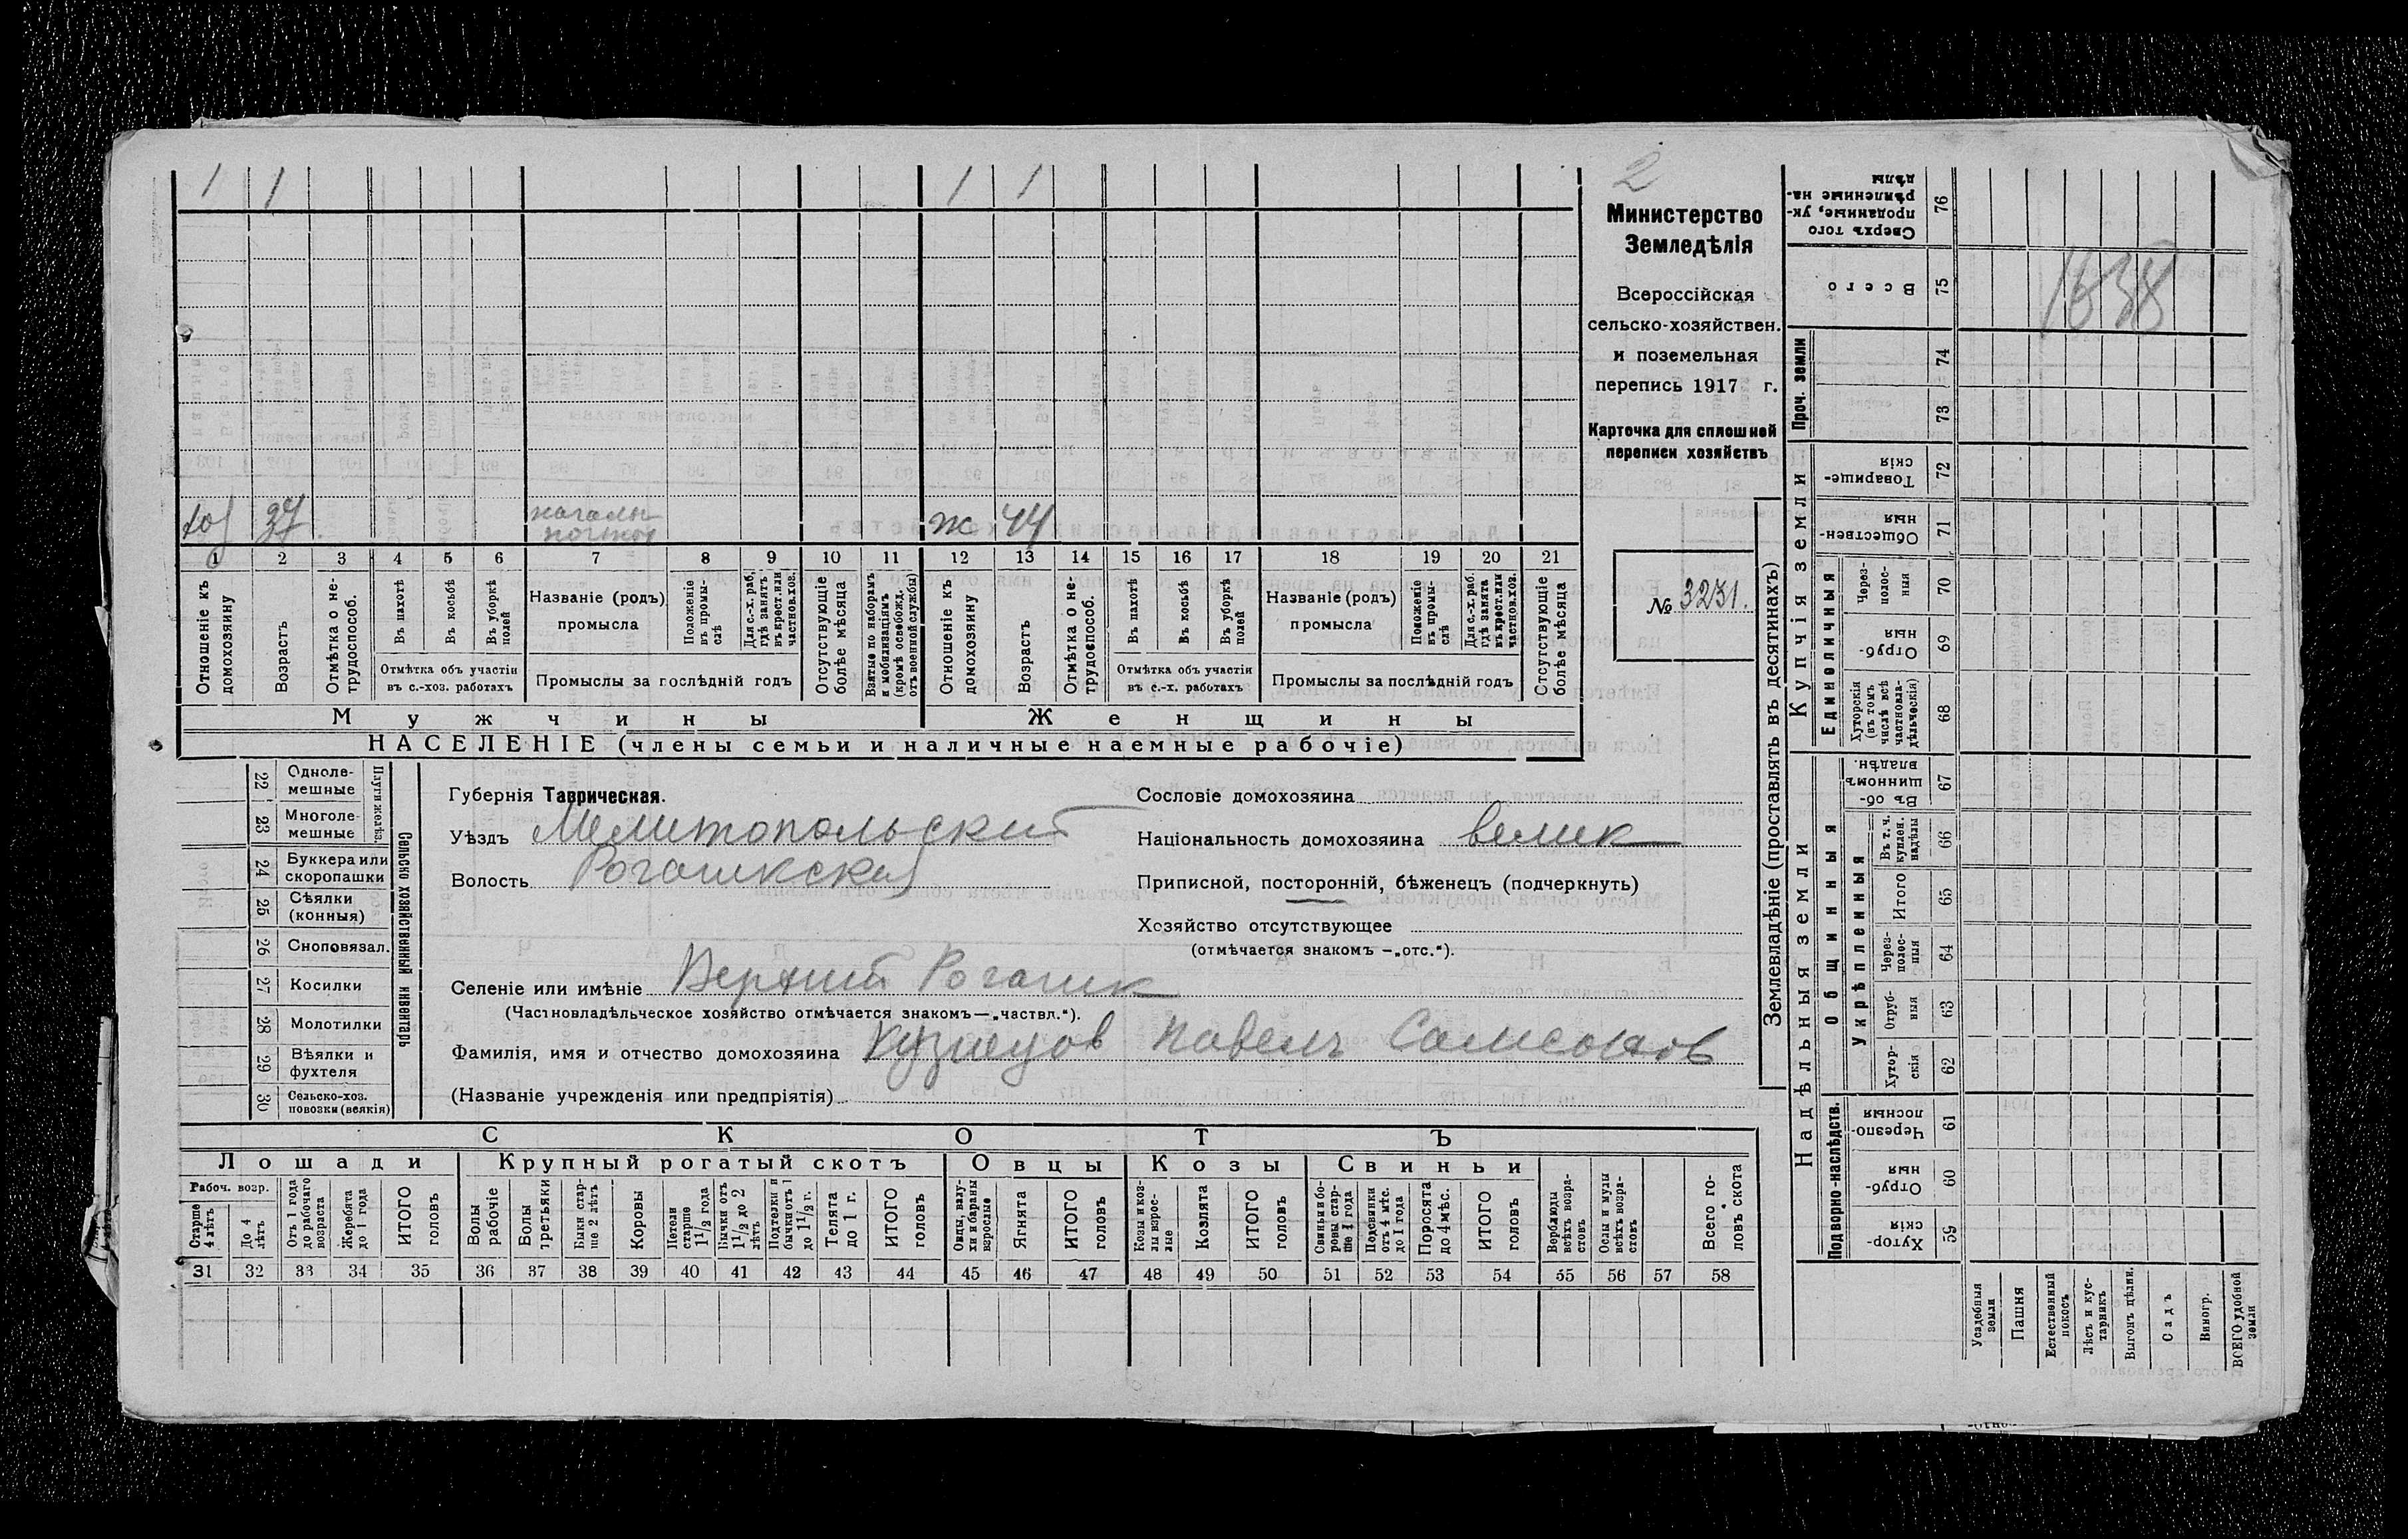 1 1 1 1
2
Министерство
Земледѣлія
Всероссійская
сельско-хозяйствен.
и поземельная
перепись 1917 г.
Карточка для сплошной
переписи хозяйствъ
№ 3231.
хоз 37 началь- ж 44
почтов
1 2 3 4 5 6 7 8 9 10 11 12 13 14 15 16 17 18 19 20 21
Отношеніе къ домохозяину
Возрастъ
Отмѣтка о не-трудоспособ.
Въ пахотѣ
Въ косьбѣ
Въ уборкѣ полей
Отмѣтка объ участіи
въ с.-хоз. работахъ
Названіе (родъ)
промысла
Положеніе въ промы-слѣ
Для с.-х. раб. гдѣ занятъ въ крест. или частнов. хоз.
Промыслы за послѣдній годъ
Отсутствующіе болѣе мѣсяца
Взятые по наборамъ и мобилизаціямъ (кромѣ освобожд. отъ военной службы)
Отношеніе къ домохозяину
Возрастъ
Отмѣтка о не-трудоспособ.
Въ пахотѣ
Въ косьбѣ
Въ уборкѣ полей
Отмѣтка объ участіи
въ с.-х. работахъ
Названіе (родъ)
промысла
Положеніе въ промы-слѣ
Для с.-х. раб. гдѣ занята въ крест. или частнов. хоз.
Промыслы за послѣдній годъ
Отсутствующіе болѣе мѣсяца
Мужчины Женщины
НАСЕЛЕНІЕ (члены семьи и наличные наемные рабочіе)
22 Одноле-мешные
23 Многоле-мешные
Плуги желѣз.
24 Буккера или скоропашки
25 Сѣялки (конныя)
26 Сноповязал.
27 Косилки
28 Молотилки
29 Вѣялки и фухтеля
30 Сельско-хоз. повозки (всякія)
Сельско хозяйственный инвентарь
Губернія Таврическая.
Уѣздъ Мелитопольский
Волость Рогачикская
Сословіе домохозяина
Національность домохозяина велик
Приписной, посторонній, бѣженецъ (подчеркнуть)
Хозяйство отсутствующее
(отмѣчается знакомъ —„отс.“).
Селеніе или имѣніе Верхний Рогачик
(Частновладѣльческое хозяйство отмѣчается знакомъ—„частвл.“).
Фамилія, имя и отчество домохозяина Кузнецов Павелъ Самсонов
(Названіе учрежденія или предпріятія)
СКОТЪ
Лошади Крупный рогатый скотъ Овцы Козы Свиньи
Рабоч. возр.
Старше 4 лѣтъ
До 4 лѣтъ
Отъ 1 года до рабочаго возраста
Жеребята до 1 года
ИТОГО головъ
Волы рабочіе
Волы третьяки
Быки стар-ше 2 лѣтъ
Коровы
Нетели старше 1 1/2 года
Бычки отъ 1 1/2 до 2 лѣтъ
Подтелки и бычки отъ 1 до 1 1/2 г.
Телята до 1 г.
ИТОГО головъ
Овцы, валу-хи и бараны взрослые
Ягнята
ИТОГО головъ
Козы и коз-лы взрос-лые
Козлята
ИТОГО головъ
Свиньи и бо-ровы стар-ше 1 года
Подсвинки отъ 4 мѣс. до 1 года
Поросята до 4 мѣс.
ИТОГО головъ
Верблюды всѣхъ возра-стовъ
Ослы и мулы всѣхъ возра-стовъ
Всего го-ловъ скота
31 32 33 34 35 36 37 38 39 40 41 42 43 44 45 46 47 48 49 50 51 52 53 54 55 56 57 58
Землевладѣніе (проставлять въ десятинахъ)
Сверхъ того проданные, ук-рѣпленные на-дѣлы 76
Всего 75
1638
Проч. земли
74
73
Купчія земли
Товарище-скія 72
Обществен-ныя 71
Единоличныя
Через-полос-ныя 70
Отруб-ныя 69
Хуторскія (въ томъ числѣ всѣ частновла-дѣльческія) 68
Надѣльныя земли
Общинныя
Въ об-щинномъ владѣн. 67
Укрѣпленныя
Въ т. ч. куплен. надѣлы 66
Итого 65
Через-полос-ныя 64
Отруб-ныя 63
Хутор-скія 62
Подворно-наслѣдств.
Черезпо-лосныя 61
Отруб-ныя 60
Хутор-скія 59
Усадебныя земли
Пашня
Естественный покосъ
Лѣсъ и кус-тарникъ
Выгонъ цѣлин.
Садъ
Виногр.
ВСЕГО удобной земли